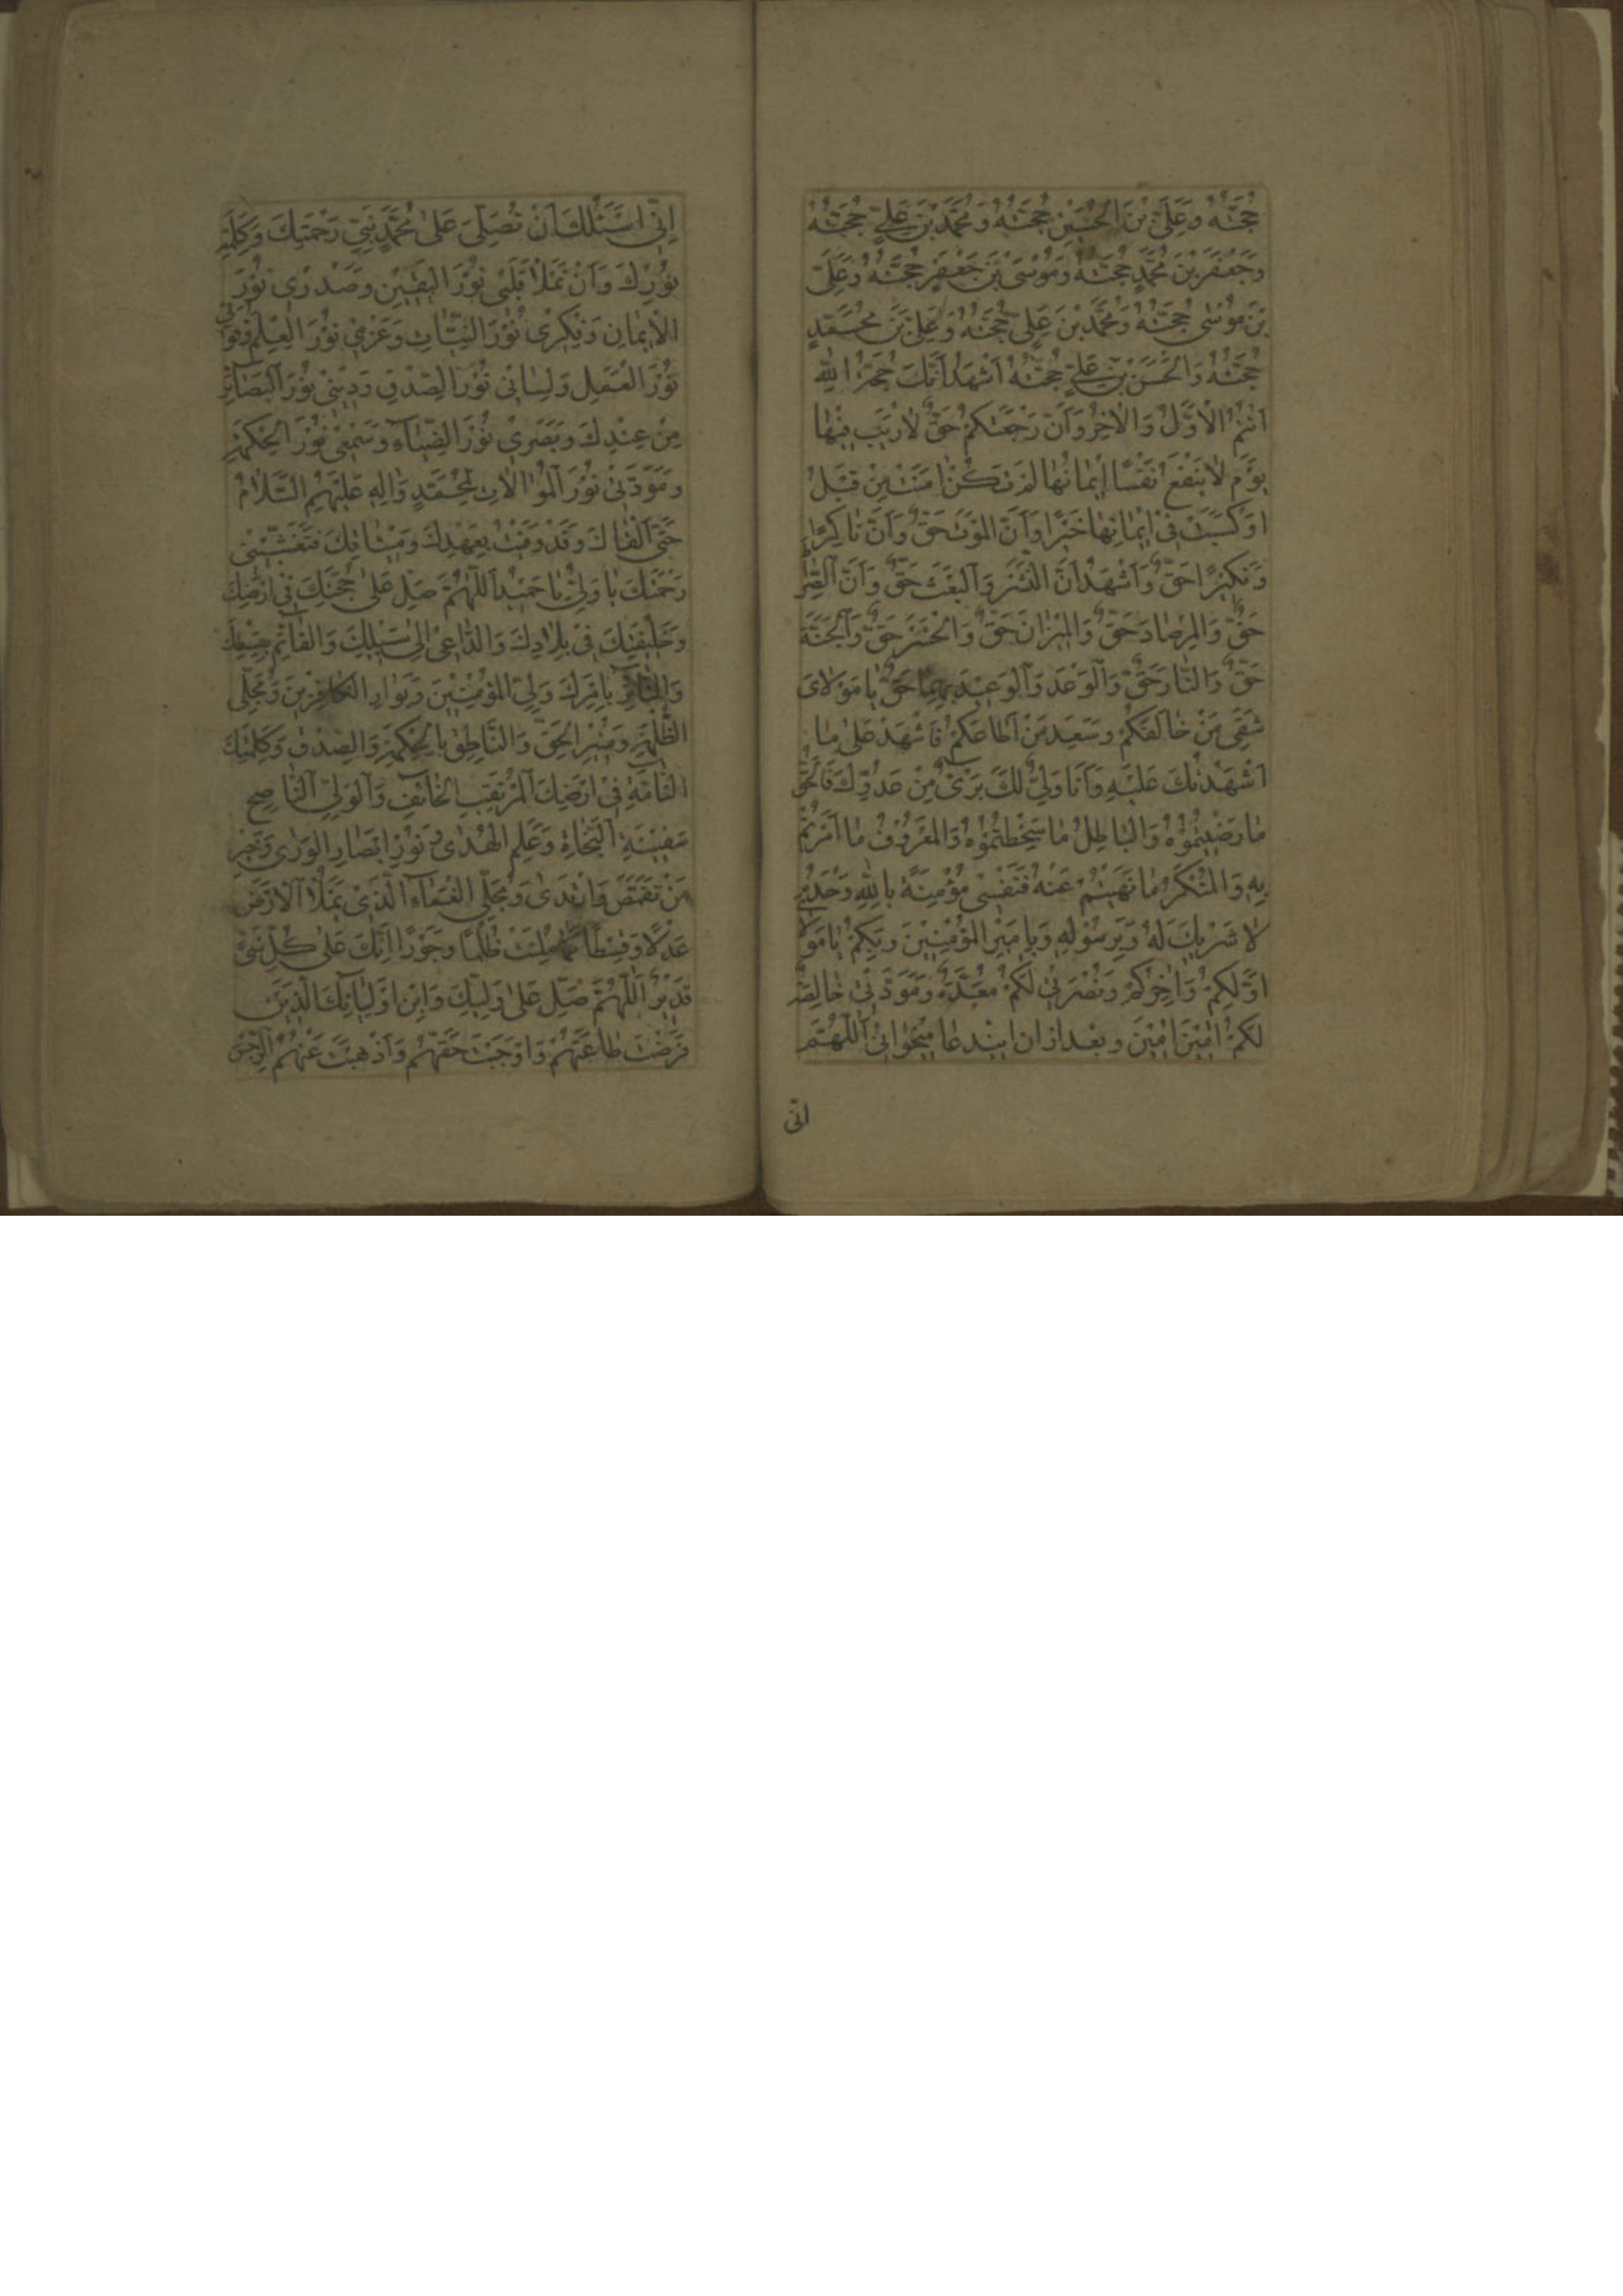 حُجَّتُهُ وَعَلِيَّ بْنَ الْحُسَيْنِ حُجَّتُهُ وَمُحَمَّدَ بْنَ عَلِيٍّ حُجَّتُهُ
وَجَعْفَرَ بْنَ مُحَمَّدٍ حُجَّتُهُ وَمُوسَى بْنَ جَعْفَرٍ حُجَّتُهُ وَعَلِيَّ
بْنَ مُوسٰى حُجَّتُهُ وَمُحَمَّدَ بْنَ عَلِيٍّ حُجَّتُهُ وَعَلِيَّ بْنَ مُحَمَّدٍ
حُجَّتُهُ وَالْحَسَنَ بْنَ عَلِيٍّ حُجَّتُهُ اَشْهَدُ اَنَّكَ حُجَّةُ اللّٰهِ
اَنْتُمُ الْاَوَّلُ وَالْاٰخِرُ وَاَنَّ رَجْعَتَكُمْ حَقٌّ لَا رَيْبَ فِيْهَا
يَوْمَ لَا يَنْفَعُ نَفْسًا اِيْمَانُهَا لَمْ تَكُنْ اٰمَنَتْ مِنْ قَبْلُ
اَوْ كَسَبَتْ فِيْ اِيْمَانِهَا خَيْرًا وَاَنَّ الْمَوْتَ حَقٌّ وَاَنَّ نَاكِرًا
وَنَكِيْرًا حَقٌّ وَاَشْهَدُ اَنَّ النَّشْرَ وَالْبَعْثَ حَقٌّ وَاَنَّ الصِّرَاطَ
حَقٌّ وَالْمِرْصَادَ حَقٌّ وَالْمِيْزَانَ حَقٌّ وَالْحَشْرَ حَقٌّ وَالْجَنَّةَ
حَقٌّ وَالنَّارَ حَقٌّ وَالْوَعْدَ وَالْوَعِيْدَ بِهِمَا حَقٌّ يَا مَوْلَايَ
شَقِيَ مَنْ خَالَفَكُمْ وَسَعِيدَ مَنْ اَطَاعَكُمْ فَاشْهَدْ عَلٰى مَا
اَشْهَدْتُكَ عَلَيْهِ وَاَنَا وَلِيٌّ لَكَ بَرِيْءٌ مِنْ عَدُوِّكَ فَالْحَقُّ
مَا رَضِيْتُمُوْهُ وَالْبَاطِلُ مَا سَخِطْتُمُوْهُ وَالْمَعْرُوْفُ مَا اَمَرْتُمْ
بِهِ وَالْمُنْكَرُ مَا نَهَيْتُمْ عَنْهُ فَنَفْسِيْ مُؤْمِنَةٌ بِاللّٰهِ وَحْدَهُ
لَا شَرِيْكَ لَهُ وَبِرَسُوْلِهِ وَبِاَمِيْرِ الْمُؤْمِنِيْنَ وَبِكُمْ يَا مَوْلَا
اَوَّلِكُمْ وَاٰخِرِكُمْ وَنُصْرَتِيْ لَكُمْ مُعَدَّةٌ وَمَوَدَّتِيْ خَالِصَةٌ
لَكُمْ اٰمِيْنَ اٰمِيْنَ وبعد از ان ايندعا ميخوانى اَللّٰهُمَّ
انّى
اِنِّيْ اَسْئَلُكَ اَنْ تُصَلِّيَ عَلٰى مُحَمَّدٍ نَبِيِّ رَحْمَتِكَ وَكَلِمَةِ
نُوْرِكَ وَاَنْ تَمْلَاَ قَلْبِيْ نُوْرَ الْيَقِيْنِ وَصَدْرِيْ نُوْرَ
الْاِيْمَانِ وَفِكْرِيْ نُوْرَ النِّيَّاتِ وَعَزْمِيْ نُوْرَ الْعِلْمِ وَقُوَّتِيْ
نُوْرَ الْعَمَلِ وَلِسَانِيْ نُوْرَ الصِّدْقِ وَدِيْنِيْ نُوْرَ الْبَصَائِرِ
مِنْ عِنْدِكَ وَبَصَرِيْ نُوْرَ الضِّيَاءِ وَسَمْعِيْ نُوْرَ الْحِكْمَةِ
وَمَوَدَّتِيْ نُوْرَ الْمُوَالَاتِ لِمُحَمَّدٍ وَاٰلِهِ عَلَيْهِمُ السَّلَامُ
حَتّٰى اَلْقَاكَ وَقَدْ وَفَيْتُ بِعَهْدِكَ وَمِيْثَاقِكَ فَتُغَشِّيَنِيْ
رَحْمَتَكَ يَا وَلِيُّ يَا حَمِيْدُ اَللّٰهُمَّ صَلِّ عَلٰى حُجَّتِكَ فِيْ اَرْضِكَ
وَخَلِيْفَتِكَ فِيْ بِلَادِكَ وَالدَّاعِيْ اِلٰى سَبِيْلِكَ وَالْقَائِمِ بِقِسْطِكَ
وَالثَّائِرِ بِاَمْرِكَ وَلِيِّ الْمُؤْمِنِيْنَ وَبَوَارِ الْكَافِرِيْنَ وَمُجَلِّي
الظُّلْمَةِ وَمُنِيْرِ الْحَقِّ وَالنَّاطِقِ بِالْحِكْمَةِ وَالصِّدْقِ وَكَلِمَتِكَ
التَّامَّةِ فِيْ اَرْضِكَ الْمُرْتَقِبِ الْخَائِفِ وَالْوَلِيِّ النَّاصِحِ
سَفِيْنَةِ النَّجَاةِ وَعَلَمِ الْهُدٰى وَنُوْرِ اَبْصَارِ الْوَرٰى وَخَيْرِ
مَنْ تَقَمَّصَ وَارْتَدٰى وَمُجَلِّي الْغَمَّاءِ الَّذِيْ يَمْلَاُ الْاَرْضَ
عَدْلًا وَقِسْطًا كَمَا مُلِئَتْ ظُلْمًا وَجَوْرًا اِنَّكَ عَلٰى كُلِّ شَيْءٍ
قَدِيْرٌ اَللّٰهُمَّ صَلِّ عَلٰى وَلِيِّكَ وَابْنِ اَوْلِيَائِكَ الَّذِيْنَ
فَرَضْتَ طَاعَتَهُمْ وَاَوْجَبْتَ حَقَّهُمْ وَاَذْهَبْتَ عَنْهُمُ الرِّجْسَ